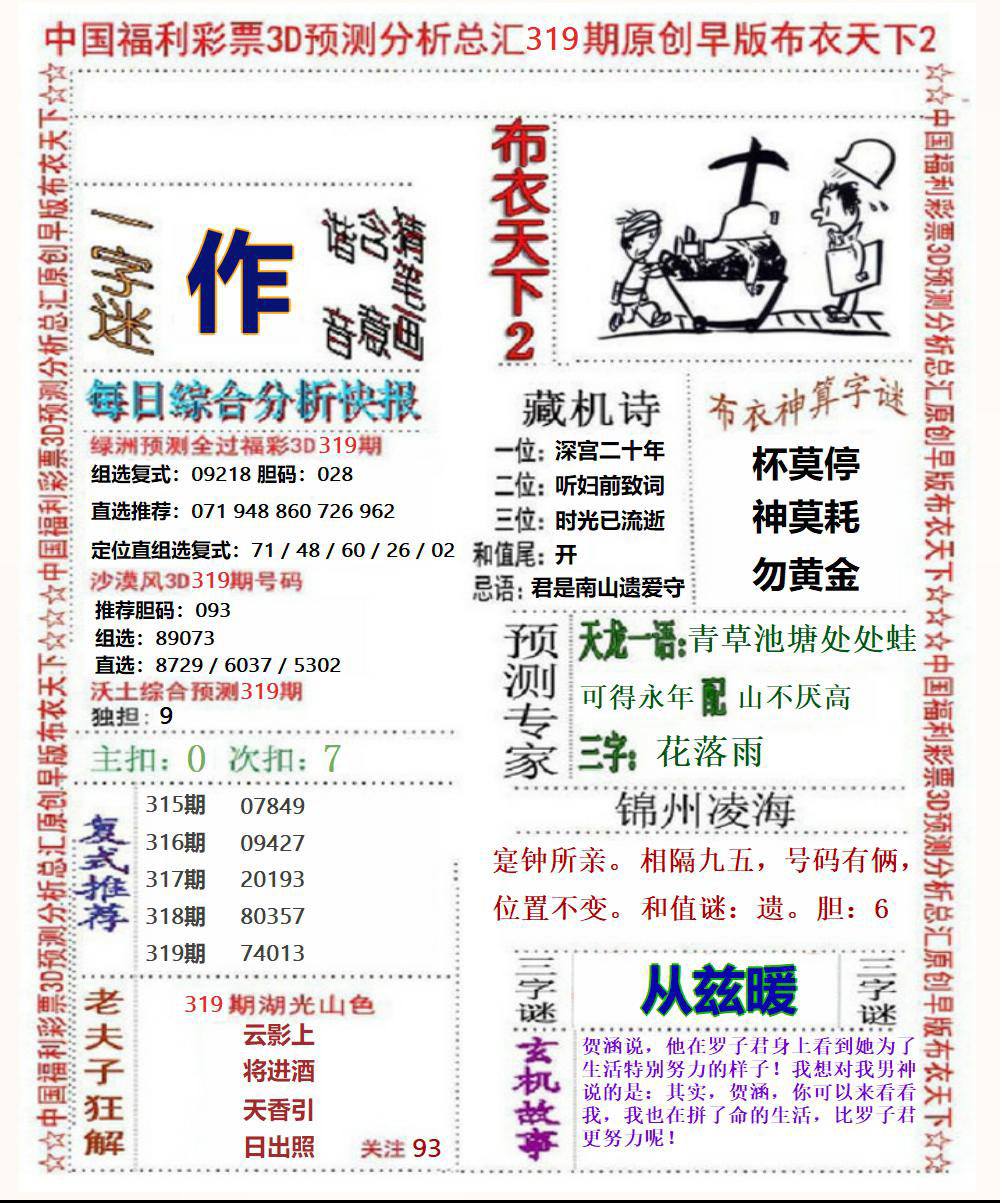 中国福利彩票3D预测分析总汇319期原创早版布衣天下2
☆☆中国福利彩票3D预测分析总汇原创早版布衣天下☆☆☆中国福利彩票3D预测分析总汇原创早版布衣天下☆☆
一字迷
作
猜笔画
含意
拮音
布衣天下2
每日综合分析快报
绿洲预测全过福彩3D319期
组选复式：09218 胆码：028
直选推荐：071 948 860 726 962
定位直组选复式：71 / 48 / 60 / 26 / 02
沙漠风3D319期号码
推荐胆码：093
组选：89073
直选：8729 / 6037 / 5302
沃土综合预测319期
独担：9
主扣：0 次扣：7
复式推荐
315期 07849
316期 09427
317期 20193
318期 80357
319期 74013
老夫子狂解
319期湖光山色
云影上
将进酒
天香引
日出照 关注 93
藏机诗
一位：深宫二十年
二位：听妇前致词
三位：时光已流逝
和值尾：开
忌语：君是南山遗爱守
布衣神算字谜
杯莫停
神莫耗
勿黄金
预测专家
天龙一语：青草池塘处处蛙
可得永年 配 山不厌高
三字：花落雨
锦州凌海
寔钟所亲。相隔九五，号码有俩，
位置不变。和值谜：遗。胆：6
三字谜
从兹暖
三字谜
玄机故事
贺涵说，他在罗子君身上看到她为了
生活特别努力的样子！我想对我男神
说的是：其实，贺涵，你可以来看看
我，我也在拼了命的生活，比罗子君
更努力呢！
☆☆中国福利彩票3D预测分析总汇原创早版布衣天下☆☆☆中国福利彩票3D预测分析总汇原创早版布衣天下☆☆